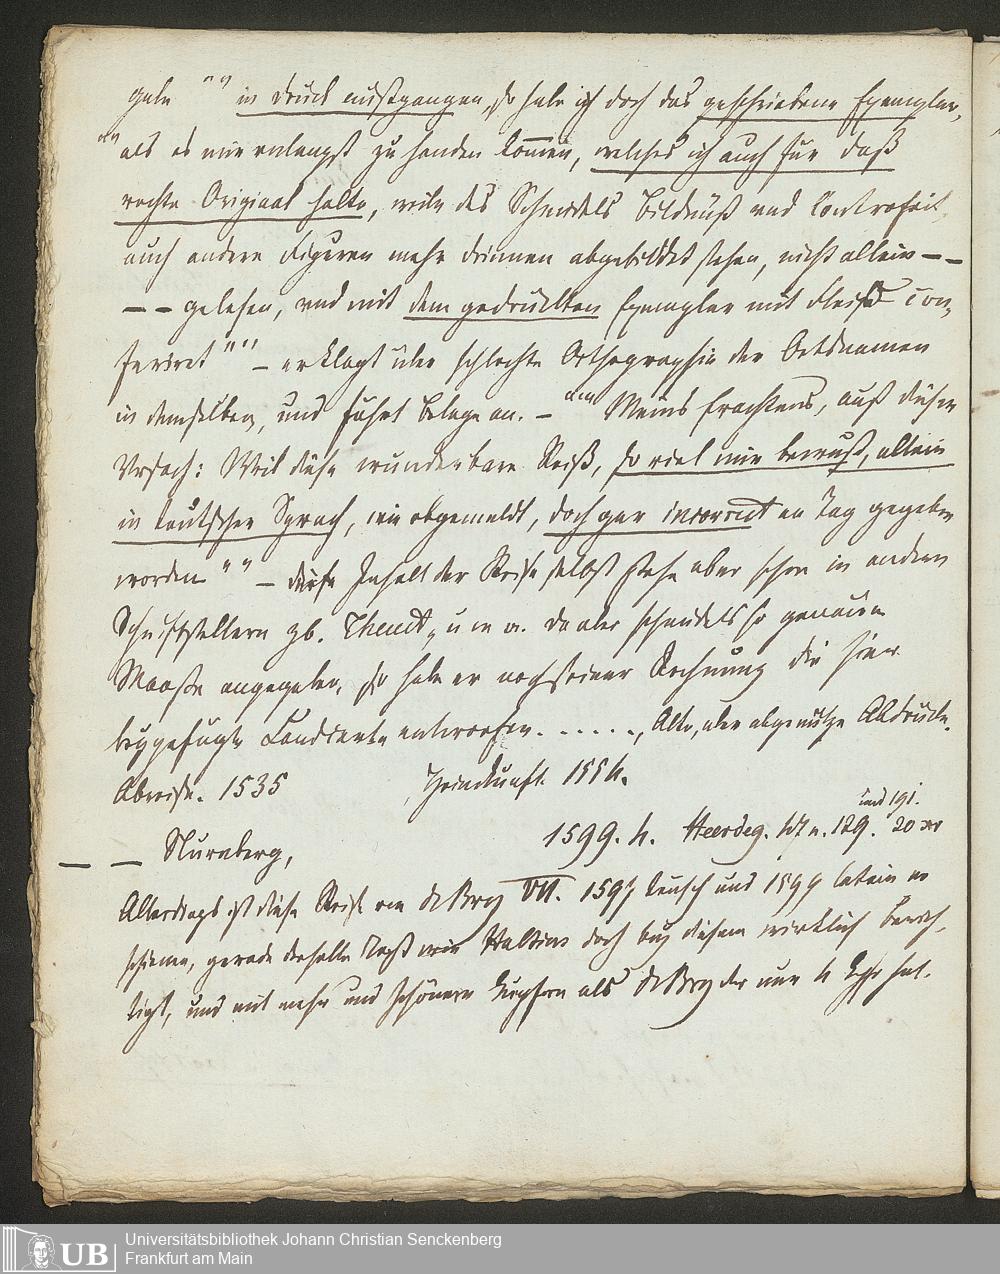 gabe "" in druck außgangen, so habe ich doch das geschriebene Exemplar,
"" als es mir unlangst zu handen kommen, welches ich auch für daß
rechte Original halte, weile des Schmidels Bildnuß und Contrafeit
auch andere Figuren mehr drinnen abgebildet stehen, nicht allein – –
– – gelesen, und mit dem gedruckten Exemplar mit Fleiß con,
feriret"" – er klagt über schlechte Orthographie der Ortsnamen
in demselben, und führt Belege an. – Meins Erachtens, auß dieser
Ursach: Weil diese wunderbare Reiß, so viel mir bewußt, allein
in teutscher Sprach, wie obgemeldt, doch gar incorrect an Tag gegeben
worden "" – Inhalt der Reise selbst stehe aber schon in andern
Schriftstellern zb. Thevet, u a. da aber Schmidels so genauen
Maaße angegeben, so habe er nach seiner Rechnung die hier
beygefügte Landcarte entworfen . . . . . ., Alte, aber abgenutzte Abdrücke.
Abreise. 1535 Heimkunft. 1554.
und 191.
– – Nürnberg, 1599. 4. Heerdeg. 107 n. 129. 20 xr
Allerdings ist diese Reise von de Bry VII. 1597 teutsch und 1599 latein er
schienen, gerade deshalb Hulsius doch bey diesem wirklich berech,
tigt, und mit mehr und schönern Kupfern als de Bry der nur 4 hat.
Universitätsbibliothek Johann Christian Senckenberg
UB Frankfurt am Main